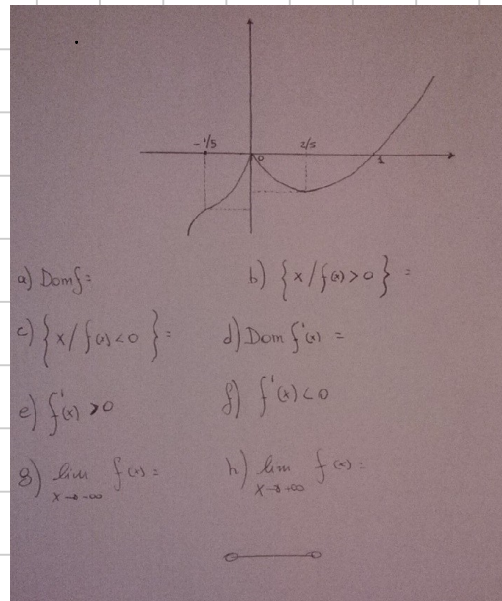 -1/5 0 2/5 1
a) Dom f = b) { x / f(x) > 0 } =
c) { x / f(x) < 0 } = d) Dom f'(x) =
e) f'(x) > 0 f) f'(x) < 0
g) lim x→-∞ f(x) = h) lim x→+∞ f(x) =